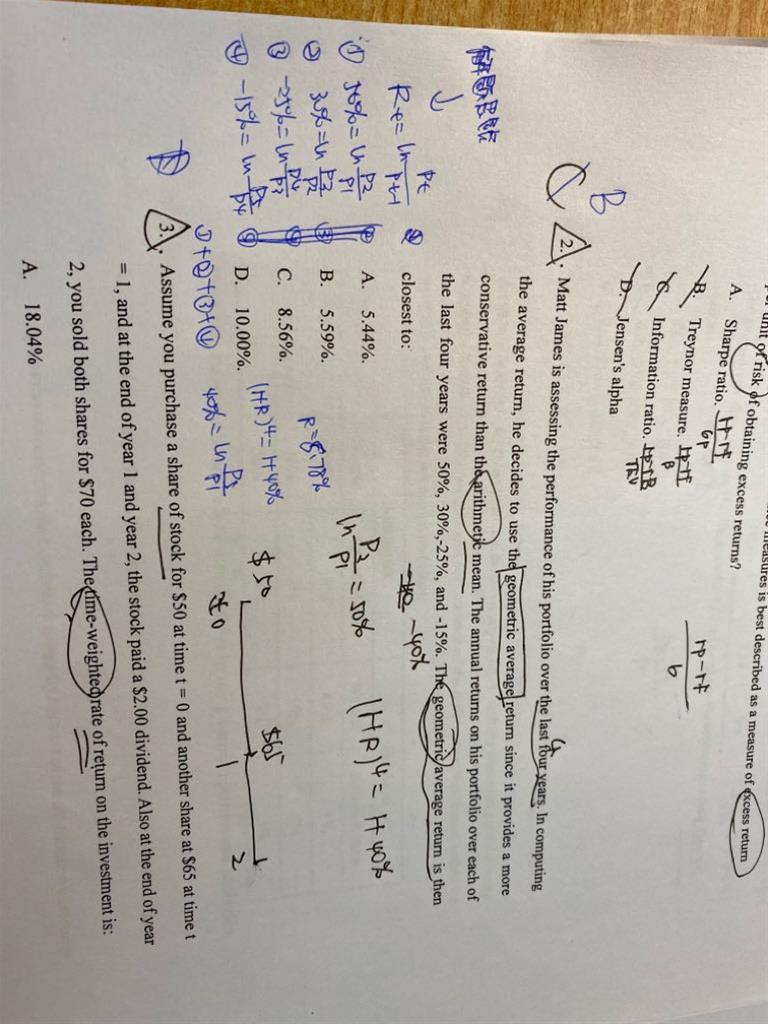 of risk of obtaining excess returns?
measures is best described as a measure of excess return
A. Sharpe ratio. rp-rf
6p
B. Treynor measure. rp-rf
B
C. Information ratio.
D. Jensen's alpha
rp-rf
6
B
C
2. Matt James is assessing the performance of his portfolio over the last four years. In computing
4
the average return, he decides to use the geometric average return since it provides a more
conservative return than the arithmetic mean. The annual returns on his portfolio over each of
the last four years were 50%, 30%,-25%, and -15%. The geometric average return is then
closest to:
-40%
A. 5.44%.
B. 5.59%.
C. 8.56%.
D. 10.00%.
↓
Rt = ln Pt
Pt-1
① 50% = ln P2
P1
② 30% = ln P3
P2
③ -25% = ln P4
P3
④ -15% = ln P5
P4
①+②+③+④
40% = ln P5
P1
R=8.78%
(1+R)^4 = 1+40%
ln P2
P1 = 50%
(1+R)^4 = 1+40%
$50
$65
0
1
2
3. Assume you purchase a share of stock for $50 at time t = 0 and another share at $65 at time t
= 1, and at the end of year 1 and year 2, the stock paid a $2.00 dividend. Also at the end of year
2, you sold both shares for $70 each. The time-weighted rate of return on the investment is:
A. 18.04%